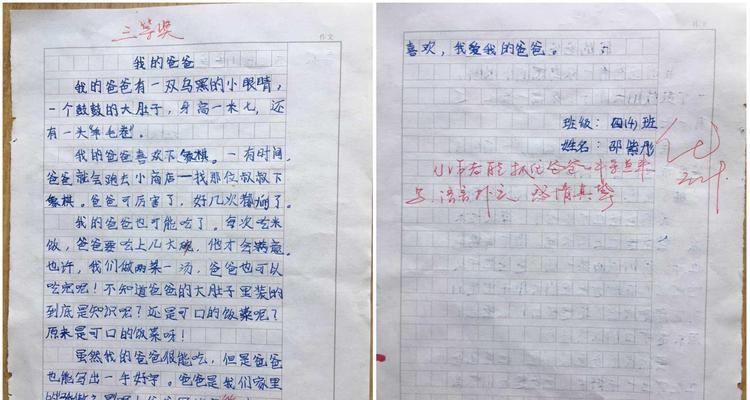 三等奖
作文
我的爸爸
我的爸爸有一双乌黑的小眼睛，
一个鼓鼓的大肚子，身高一米七，还
有一头羊毛卷。
我的爸爸喜欢下象棋。一有时间，
爸爸就会跑去小商店一找那位叔叔下
象棋。爸爸可厉害了，好几次都赢了。
我的爸爸也可能吃了。每次吃米
饭，爸爸要吃上几大碗，他才会满意。
也许，我们做两菜一汤，爸爸也可以
吃完呢！不知道爸爸的大肚子里装的
到底是知识呢？还是可口的饭菜呢？
原来是可口的饭菜呀！
虽然我的爸爸很能吃，但是爸爸
也能写出一手好字。爸爸是我们家里
作文
喜欢，我爱我的爸爸。
班级：四(4)班
姓名：邵
小作者能抓住爸爸
语言 感情真挚